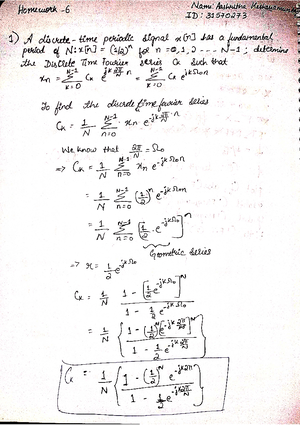 Homework - 6
ID : 31590273
1) A discrete-time periodic signal x[n] has a fundamental
period of N: x[n] = (1/2)^n for n = 0, 1, 2 --- N-1 ; determine
the Discrete Time Fourier series Ck such that
xn = Σ_{k=0}^{N-1} Ck e^{jk 2π/N n} = Σ_{k=0}^{N-1} Ck e^{jkΩ0n}
To find the discrete time fourier series
Ck = 1/N Σ_{n=0}^{N-1} xn e^{-jk 2π/N · n}
We know that 2π/N = Ω0
⇒ Ck = 1/N Σ_{n=0}^{N-1} xn e^{-jkΩ0n}
= 1/N Σ_{n=0}^{N-1} (1/2)^n e^{-jkΩ0n}
= 1/N Σ_{n=0}^{N-1} [1/2 · e^{-jkΩ0}]^n
Geometric series
⇒ r = 1/2 e^{-jkΩ0}
Ck = 1/N 1 - [1/2 e^{-jkΩ0}]^N / 1 - 1/2 e^{-jkΩ0}
= 1/N { 1 - (1/2)^N [e^{-jk 2π/N}]^N / 1 - 1/2 e^{-jk 2π/N} }
Ck = 1/N { 1 - (1/2)^N e^{-jk2π} / 1 - 1/2 e^{-jk 2π/N} }